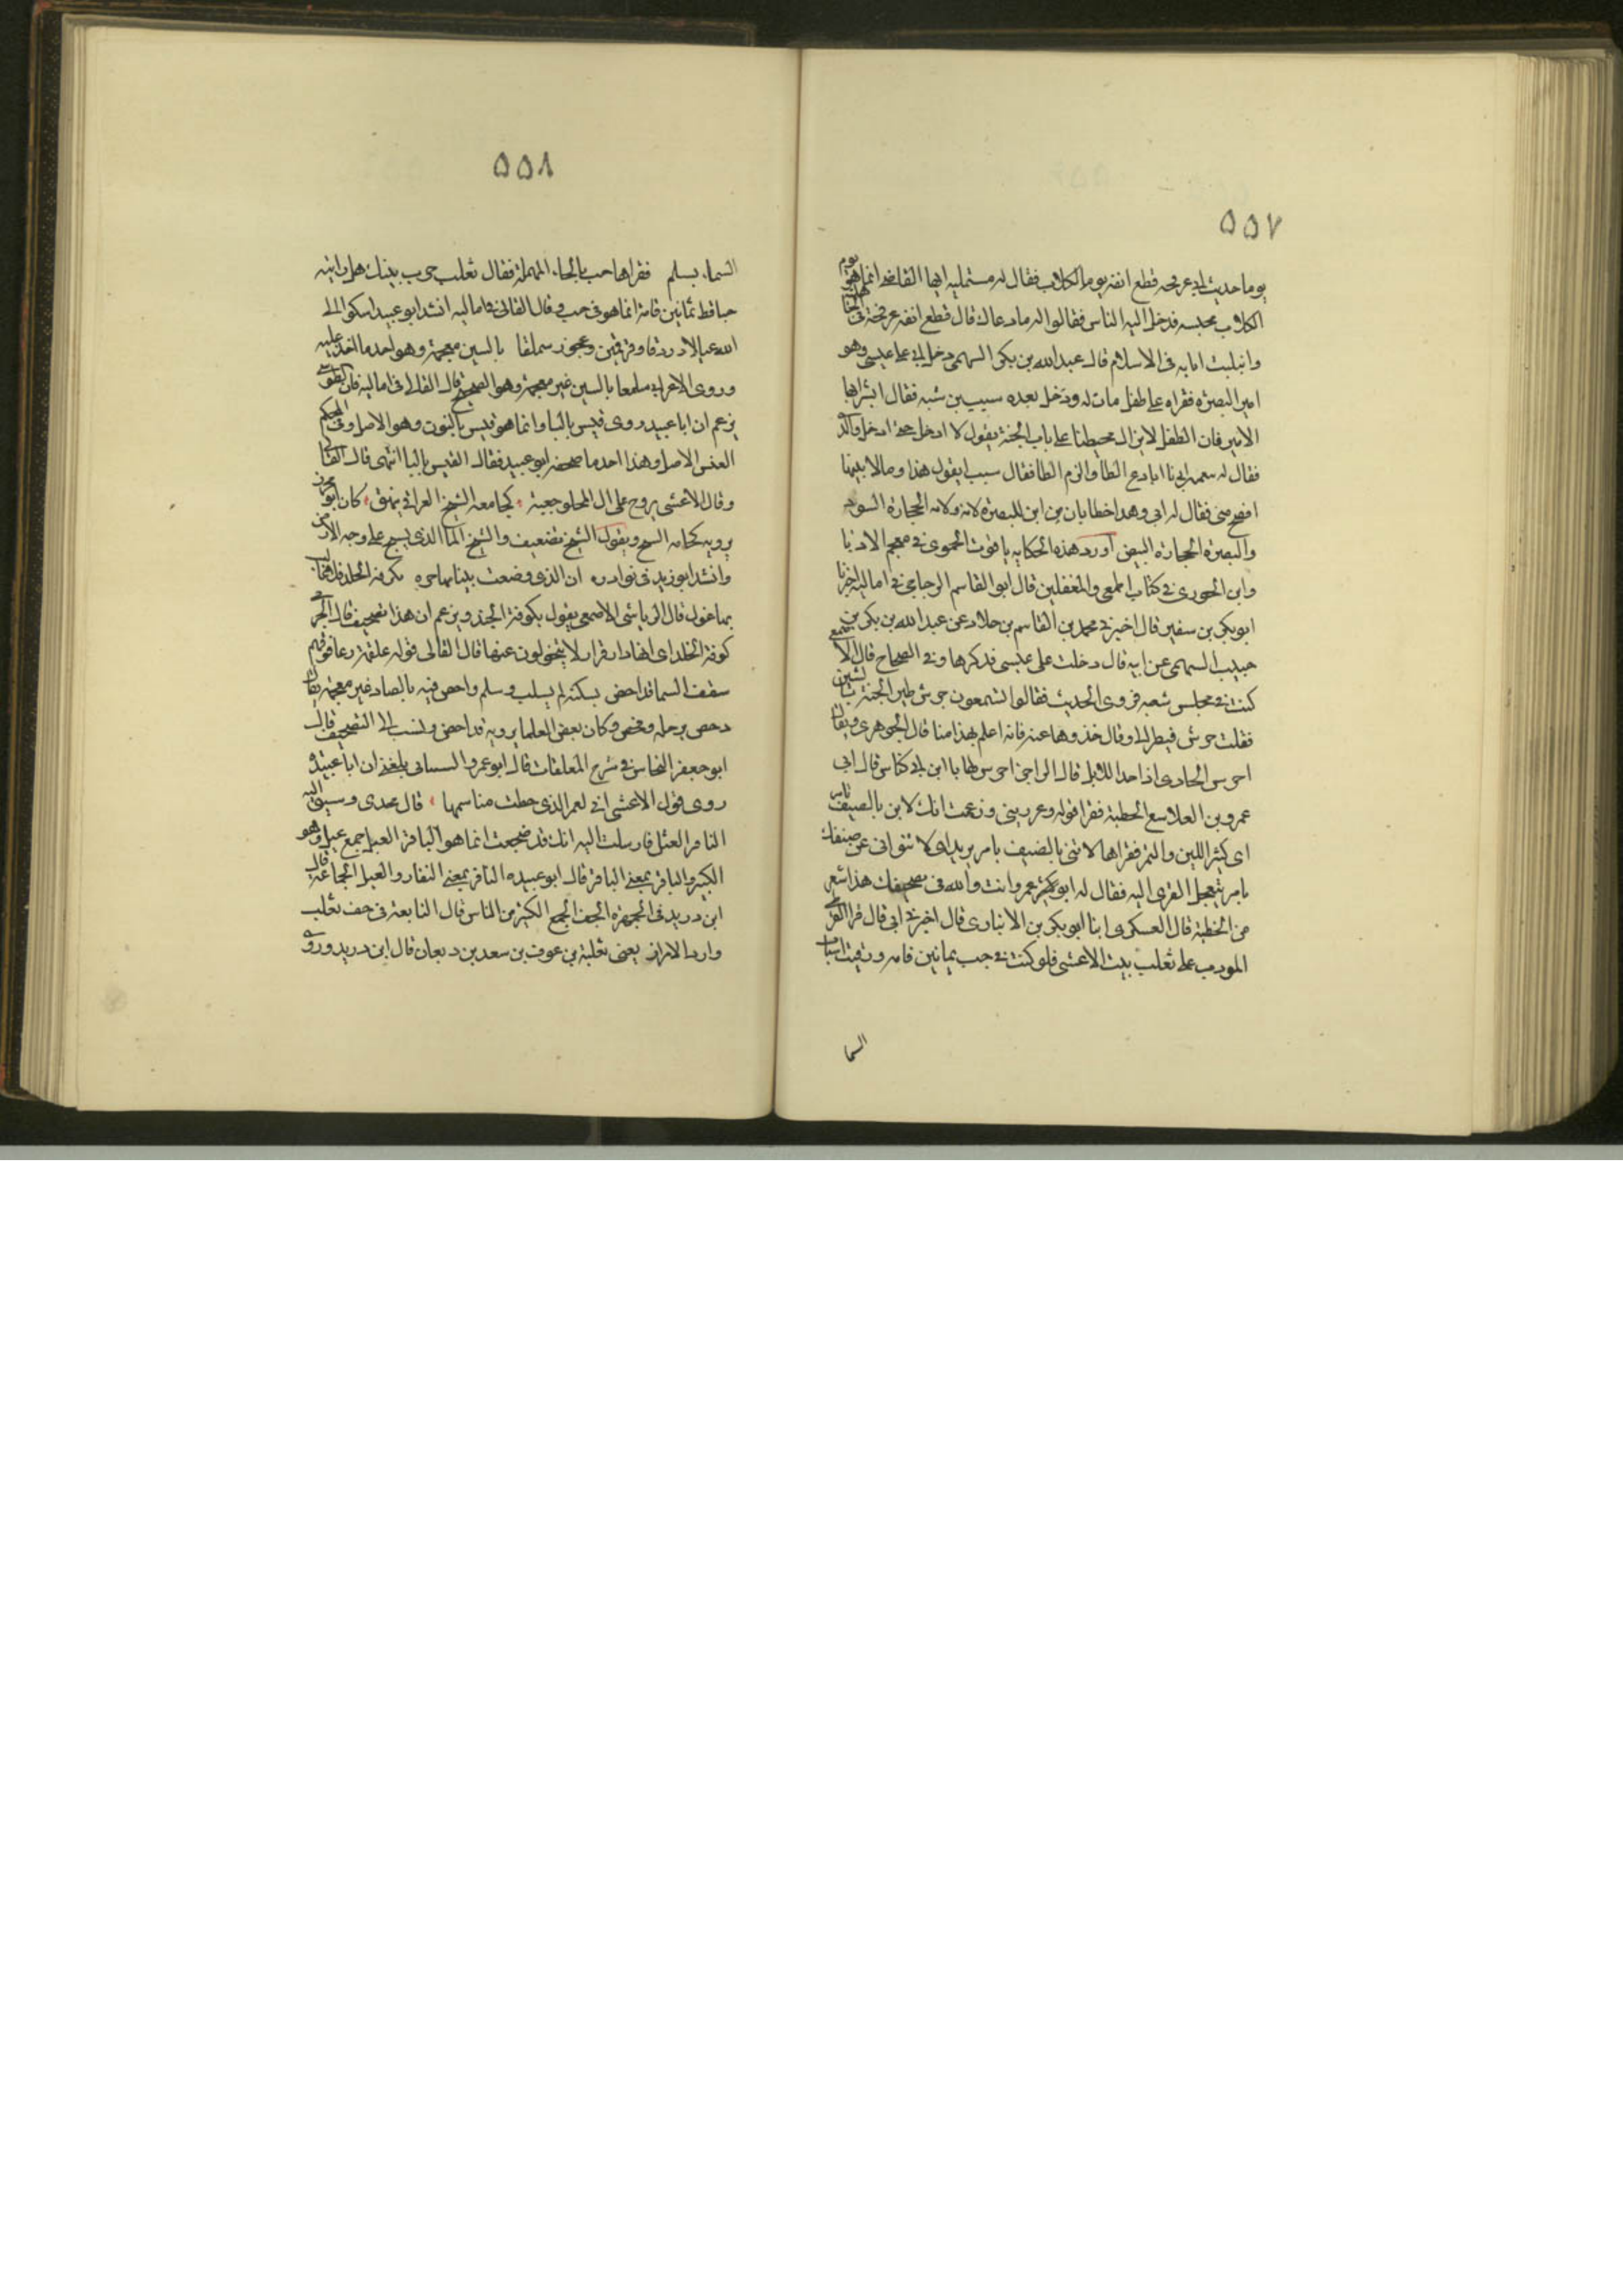 ٥٥٧
يوما حديث ان عرفجه قطع انفه يوم الكلاب فقال له مستمليه ايها القاضي انما هو يوم
الكلاب بحبسه فدخل اليه الناس فقالوا له ما دعاك قال قطع انف عرفجة في الجاهلية
وابتليت انا به في الاسلام قال عبد الله بن بكر السهمي دخل ابي على عيسى وهو
امير البصره فعزاه على طفل مات له ودخل بعده شبيب بن شبه فقال ابشر ايها
الامير فان الطفل لا يزال محبنطئا على باب الجنة يقول لا ادخل حتى ادخل والدي
فقال له ابي يا ابا دع الطا والزم الظا فقال شبيب ايقول هذا وما لابتيها
افصح مني فقال له ابي وهذا خطا ثان من اين للبصرة لابة ولابه الحجارة السود
والبصرة الحجارة البيض اورد هذه الحكايه ياقوت الحموي في معجم الادبا
وابن الجوزي في كتاب الحمقى والمغفلين قال ابو القاسم الزجاجي في اماليه اخبرنا
ابو بكر بن شقير قال اخبرني محمد بن القاسم بن خلاد عن عبد الله بن بكر بن
حبيب السهمي عن ابيه قال دخلت على عيسى فذكرها وفي الصحاح قال الاصمعي
كنت في مجلس شعبه فروى الحديث فقال تسمعون جرش طير الجنة بالشين
فقلت جرس فنظر الي وقال خذوها عنه فانه اعلم بهذا منا قال الجوهري ويقال
اجرس الحادي اذا حدا للابل قال الراجز اجرس لها يا ابن ابي كباش قال ابي
عمرو بن العلا الحطية فقرا قوله وغررتني وزعمت انك لابن بالصيف تامر
اي كثير اللبن والتمر فقراها لا تني بالضيف تامر يريد اي لا تتوانى عن ضيفك
تامر بتعجيل القرى اليه فقال له ابو عمرو انت والله في تصحيفك هذا اشعر
من الحطية قال العسكري انبا ابو بكر بن الانباري قال اخبرني ابي قال قرا القطربلي
المودب على ثعلب بيت الاعشى فلو كنت في جب ثمانين قامه ورقيت اسباب
السما
٥٥٨
السماء بسلم فقراها حب بالحاء المهملة فقال ثعلب خرب بيتك هل رايت
حبا قط ثمانين قامة انما هو في جب وقال القالي في اماليه انشد ابو عبيد اشكو الى
الله عيالا دردقا وقرقمين وعجوز سملقا بالشين معجمة وهو احد ما اخذ عليه
وروى ابن الاعرابي سلمقا بالسين غير معجمة وهو الصحيح قال القالي في اماليه كان الطوسي
يزعم ان ابا عبيد روى قبس بالبا وانما هو قنس بالنون وهو الاصل وفي المحكم
القنس الاصل وهذا احد ما صحفه ابو عبيد فقال القبس بالبا انتهى قال القالي
وقال الاعشى تروح على آل المحلق جفنة ، كجابية الشيخ العراقي تفهق ، كان ابو محرز
يرويه كجابيه السيح ويقول الشيخ تصحيف والسيح الما الذي يسيح على وجه الارض
وانشد ابو زيد في نوادره ان الذي وضعت بيتا مهاجره بكوفة الخلد قد غالت
بها غول قال الرياشي الاصمعي يقول بكوفة الجند ويزعم ان هذا تصحيف قال الجرمي
كوفة الخلد اي انها دار قرار لا يتحولون عنها قال القالي قول علقمة رغا فوقهم
سقب السما فداحص بشكته لم يستلب وسليب داحص فيه بالصاد غير معجمة يقال
دحص برجله وفحص وكان بعض العلما يرويه فداحض ونسب الى التصحيف قال
ابو جعفر النحاس في شرح المعلقات قال ابو عمرو الشيباني بلغني ان ابا عبيدة
روى قول الاعشى اني لعمر الذي حطت مناسمها ، تخدي وسيق اليه
النافر العثل فارسلت اليه انك قد صحفت انما هو الباقر الغيل جمع غيل وهو
الكثير والباقر بمعنى البقر قال ابو عبيده النافر بمعنى النفار والعثل الجماعة قال
ابن دريد في الجمهرة الجف الجمع الكثير من الناس قال النابغة في جف ثعلب
وارد الامرار يعني ثعلبة بن عوف بن سعد بن ذبيان قال ابن دريد وروى